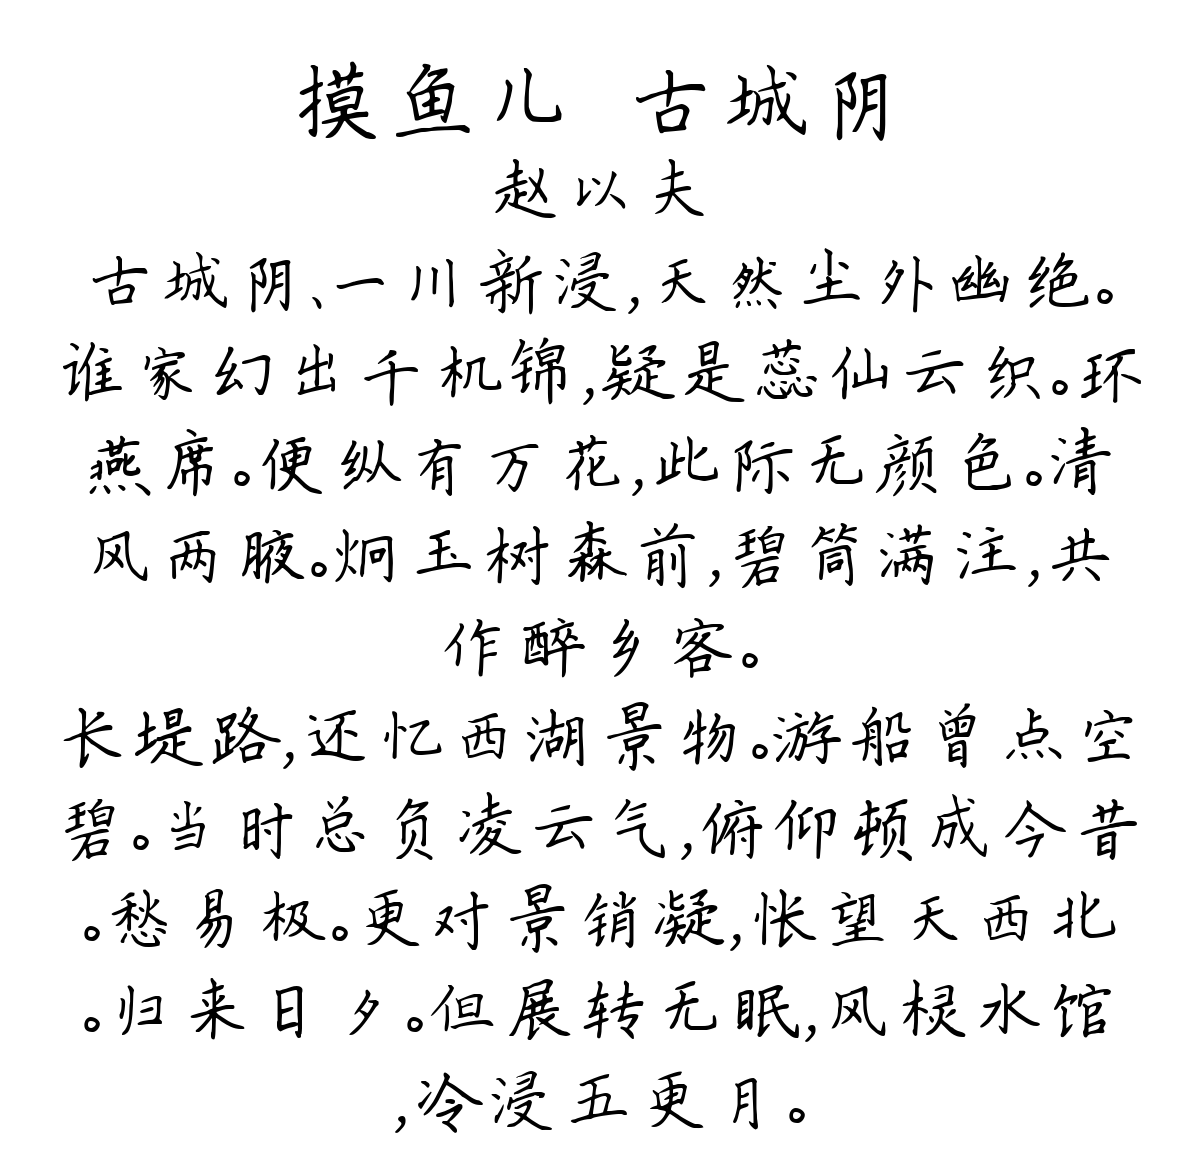 摸鱼儿 古城阴
赵以夫
古城阴、一川新浸,天然尘外幽绝。
谁家幻出千机锦,疑是蕊仙云织。环
燕席。便纵有万花,此际无颜色。清
风两腋。炯玉树森前,碧筒满注,共
作醉乡客。
长堤路,还忆西湖景物。游船曾点空
碧。当时总负凌云气,俯仰顿成今昔
。愁易极。更对景销凝,怅望天西北
。归来日夕。但展转无眠,风棂水馆
,冷浸五更月。